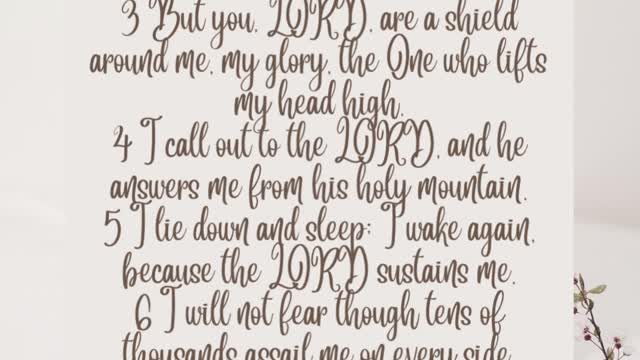 3 But you, LORD, are a shield
around me, my glory, the One who lifts
my head high.
4 I call out to the LORD, and he
answers me from his holy mountain.
5 I lie down and sleep; I wake again,
because the LORD sustains me.
6 I will not fear though tens of
thousands assail me on every side